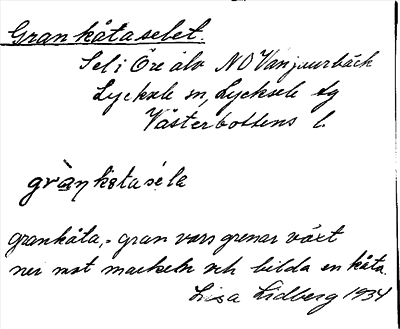 Grankåtaselet.
Sel i Öre älv NO Vanjaurbäck
Lycksele sn, Lycksele tg
Västerbottens l.
gràŋkåtaséla
grankåta, = gran vars grenar växt
ner mot marken och bilda en kåta.
Lisa Lidberg 1934